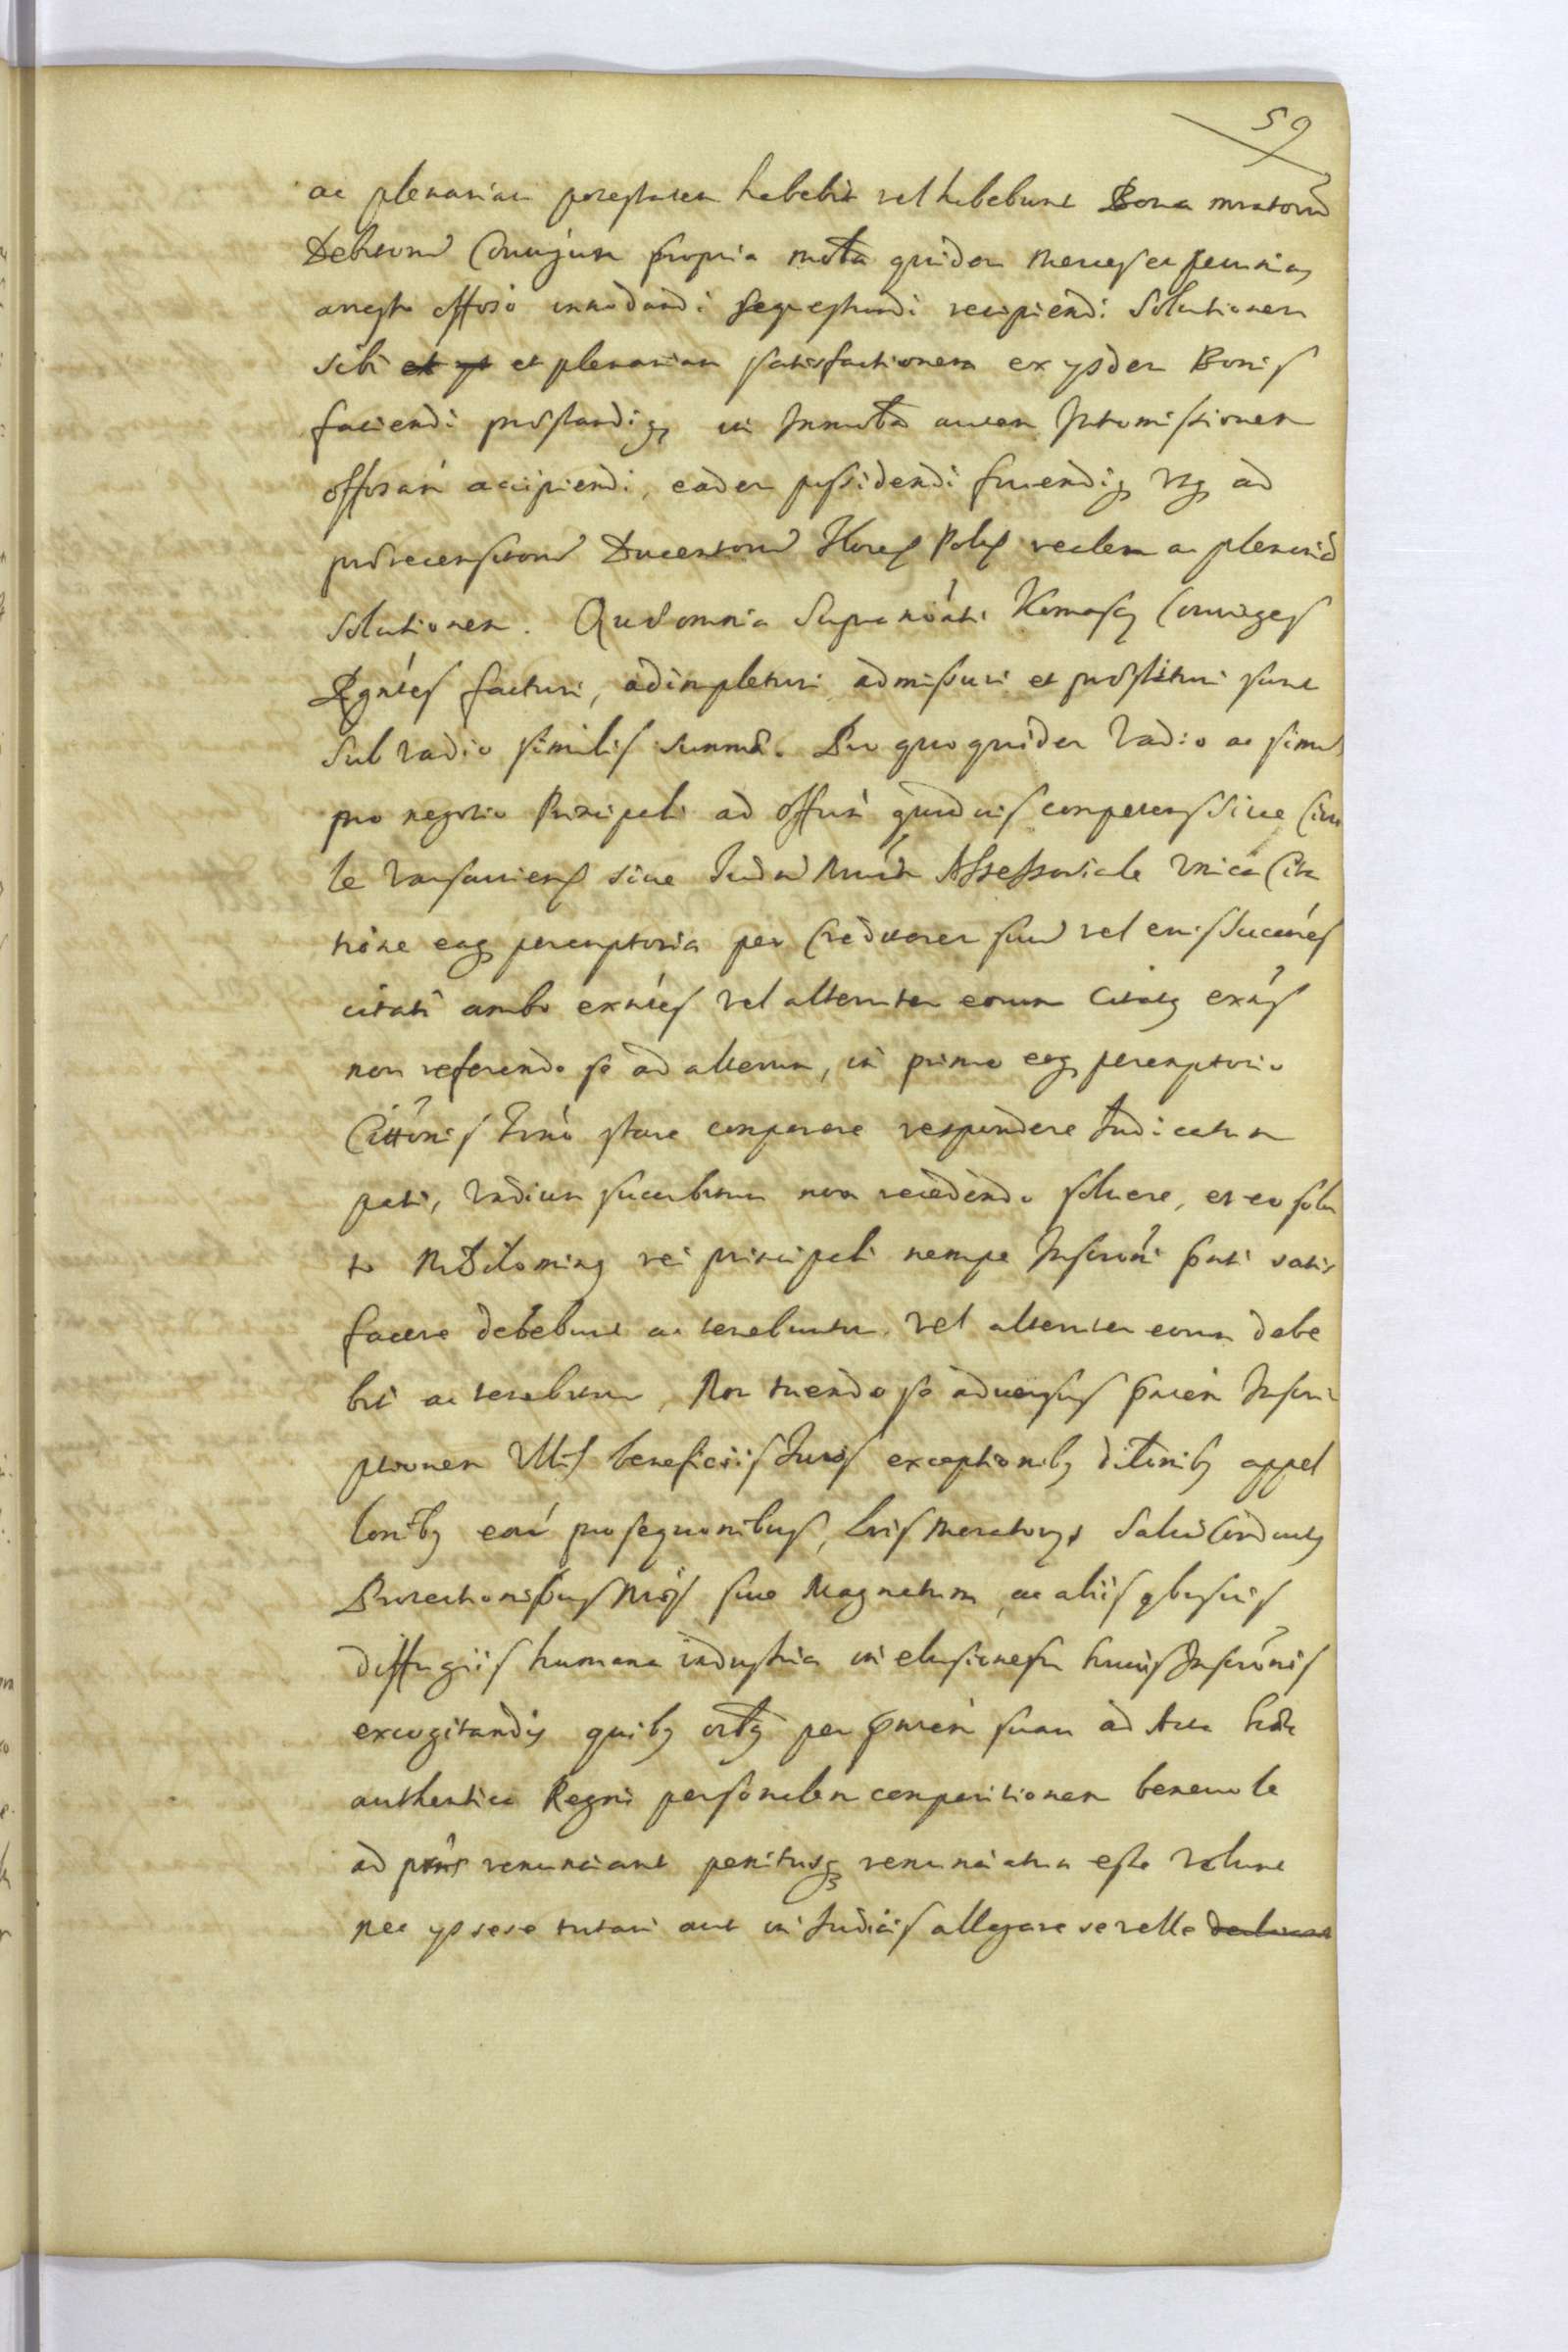 59
ac plenariam potestatem habebit vel habebunt Bona
Debitorum Conjugum propria mobilia quidem merces et pecunias
arresto offoso innodandi sequestrandi recipiendi solutionem
sibi et plenariam satisfactionem ex ysdem Bonis
faciendi praestandiq in Immobta autem Intromissionem
offosam accipiendi, eadem possidendi fruendiq usq ad
praerecensitorum Ducentorum Floren Polon realem ac plenariã
solutionem. Quae omnia supranoãti Conniuges
facturi, adimpleturi admissuri et praestituri sunt
sub vadio similis summae. Pro quo quidem vadio ac simul
pro negotio Principali ad Offum quoduis competens siue Ciui
le Varsauiens siue Assessoriale vnica Cita
tione eaq peremptoria per Creditorem suum vel eius succres
citati ambo exntes vel alteruter eorum citatq exñs
non referendo se ad alterum, in primo eoq peremptorio
Cittonis Trno stare comparere respondere Iudicatum
pati, vadium succubitum non recedendo soluere, et eo solu
to nihilominq rei principali nempe Inscrõni pnti satis
facere debebunt ac tenebuntur vel alteruter eorum debe
bit ac tenebitur, Non tuendo se aduersus pntem Inscri
ptionem Vllis beneficiis Iuris exceptionibq dilõnibq appel
lonibq eoru prosequonibus, Lris moratorys Saluiconductq
Protectionibus siue Magnatum, ac aliis qbusuis
diffugiis humana industria in elusionem huius Inscrõnis
excogitandis quibq oibq per pntem suam ad Acta haec
authentica Regni personalem comparitionem beneuole
ad pns renunciant penitusq renunciatum esse volunt
nec ys sese tutari aut in Iudiciis allegare se velle